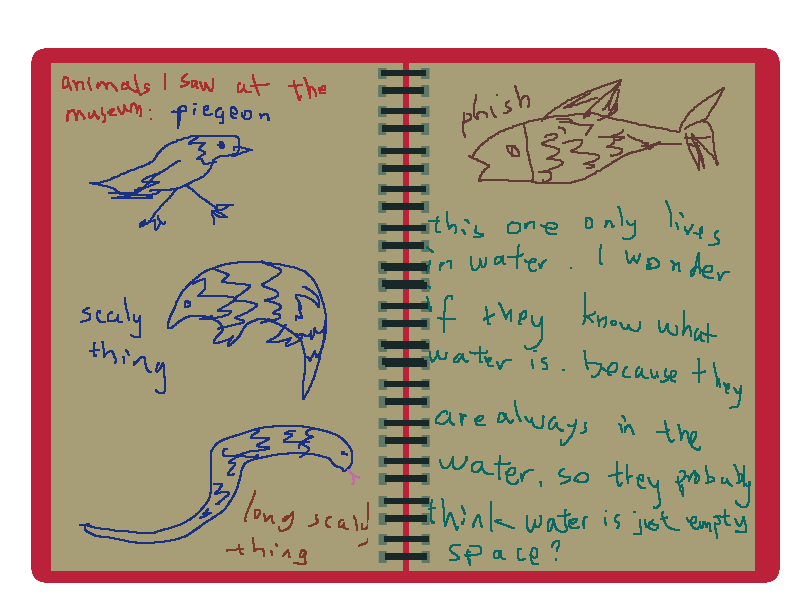 animals I saw at the
museum: piegeon
scaly
thing
long scaly
thing
phish
this one only lives
in water. I wonder
if they know what
water is. because they
are always in the
water, so they probably
think water is just empty
space?